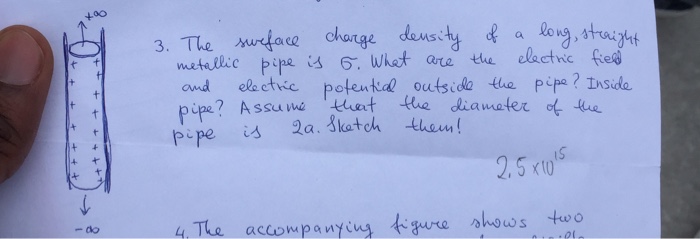 +∞
3. The surface charge density of a long, straight
metallic pipe is σ. What are the electric field
and electric potential outside the pipe? Inside
pipe? Assume that the diameter of the
pipe is 2a. Sketch them!
2,5×10¹⁵
-∞
4. The accompanying figure shows two